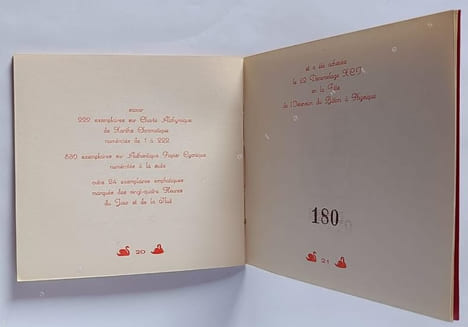 savoir
222 exemplaires sur Charte Alphysique
de Xanthe Chromatique
numérotés de 1 à 222
880 exemplaires sur Authentique Papier Cygnique
numérotés à la suite
outre 24 exemplaires emphatiques
marqués des vingt-quatre Heures
du Jour et de la Nuit
20
et a été achevée
le 22 Décervelage
en la Fête
de l'Ascension du
180
21